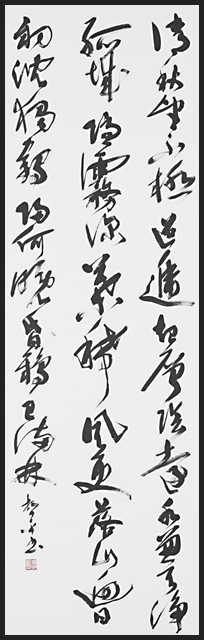 清秋望不極迢遞起層陰遠水兼天淨
孤城隱霧深葉稀風更落山迥日
初沈獨鶴歸何晚昏鴉已滿林